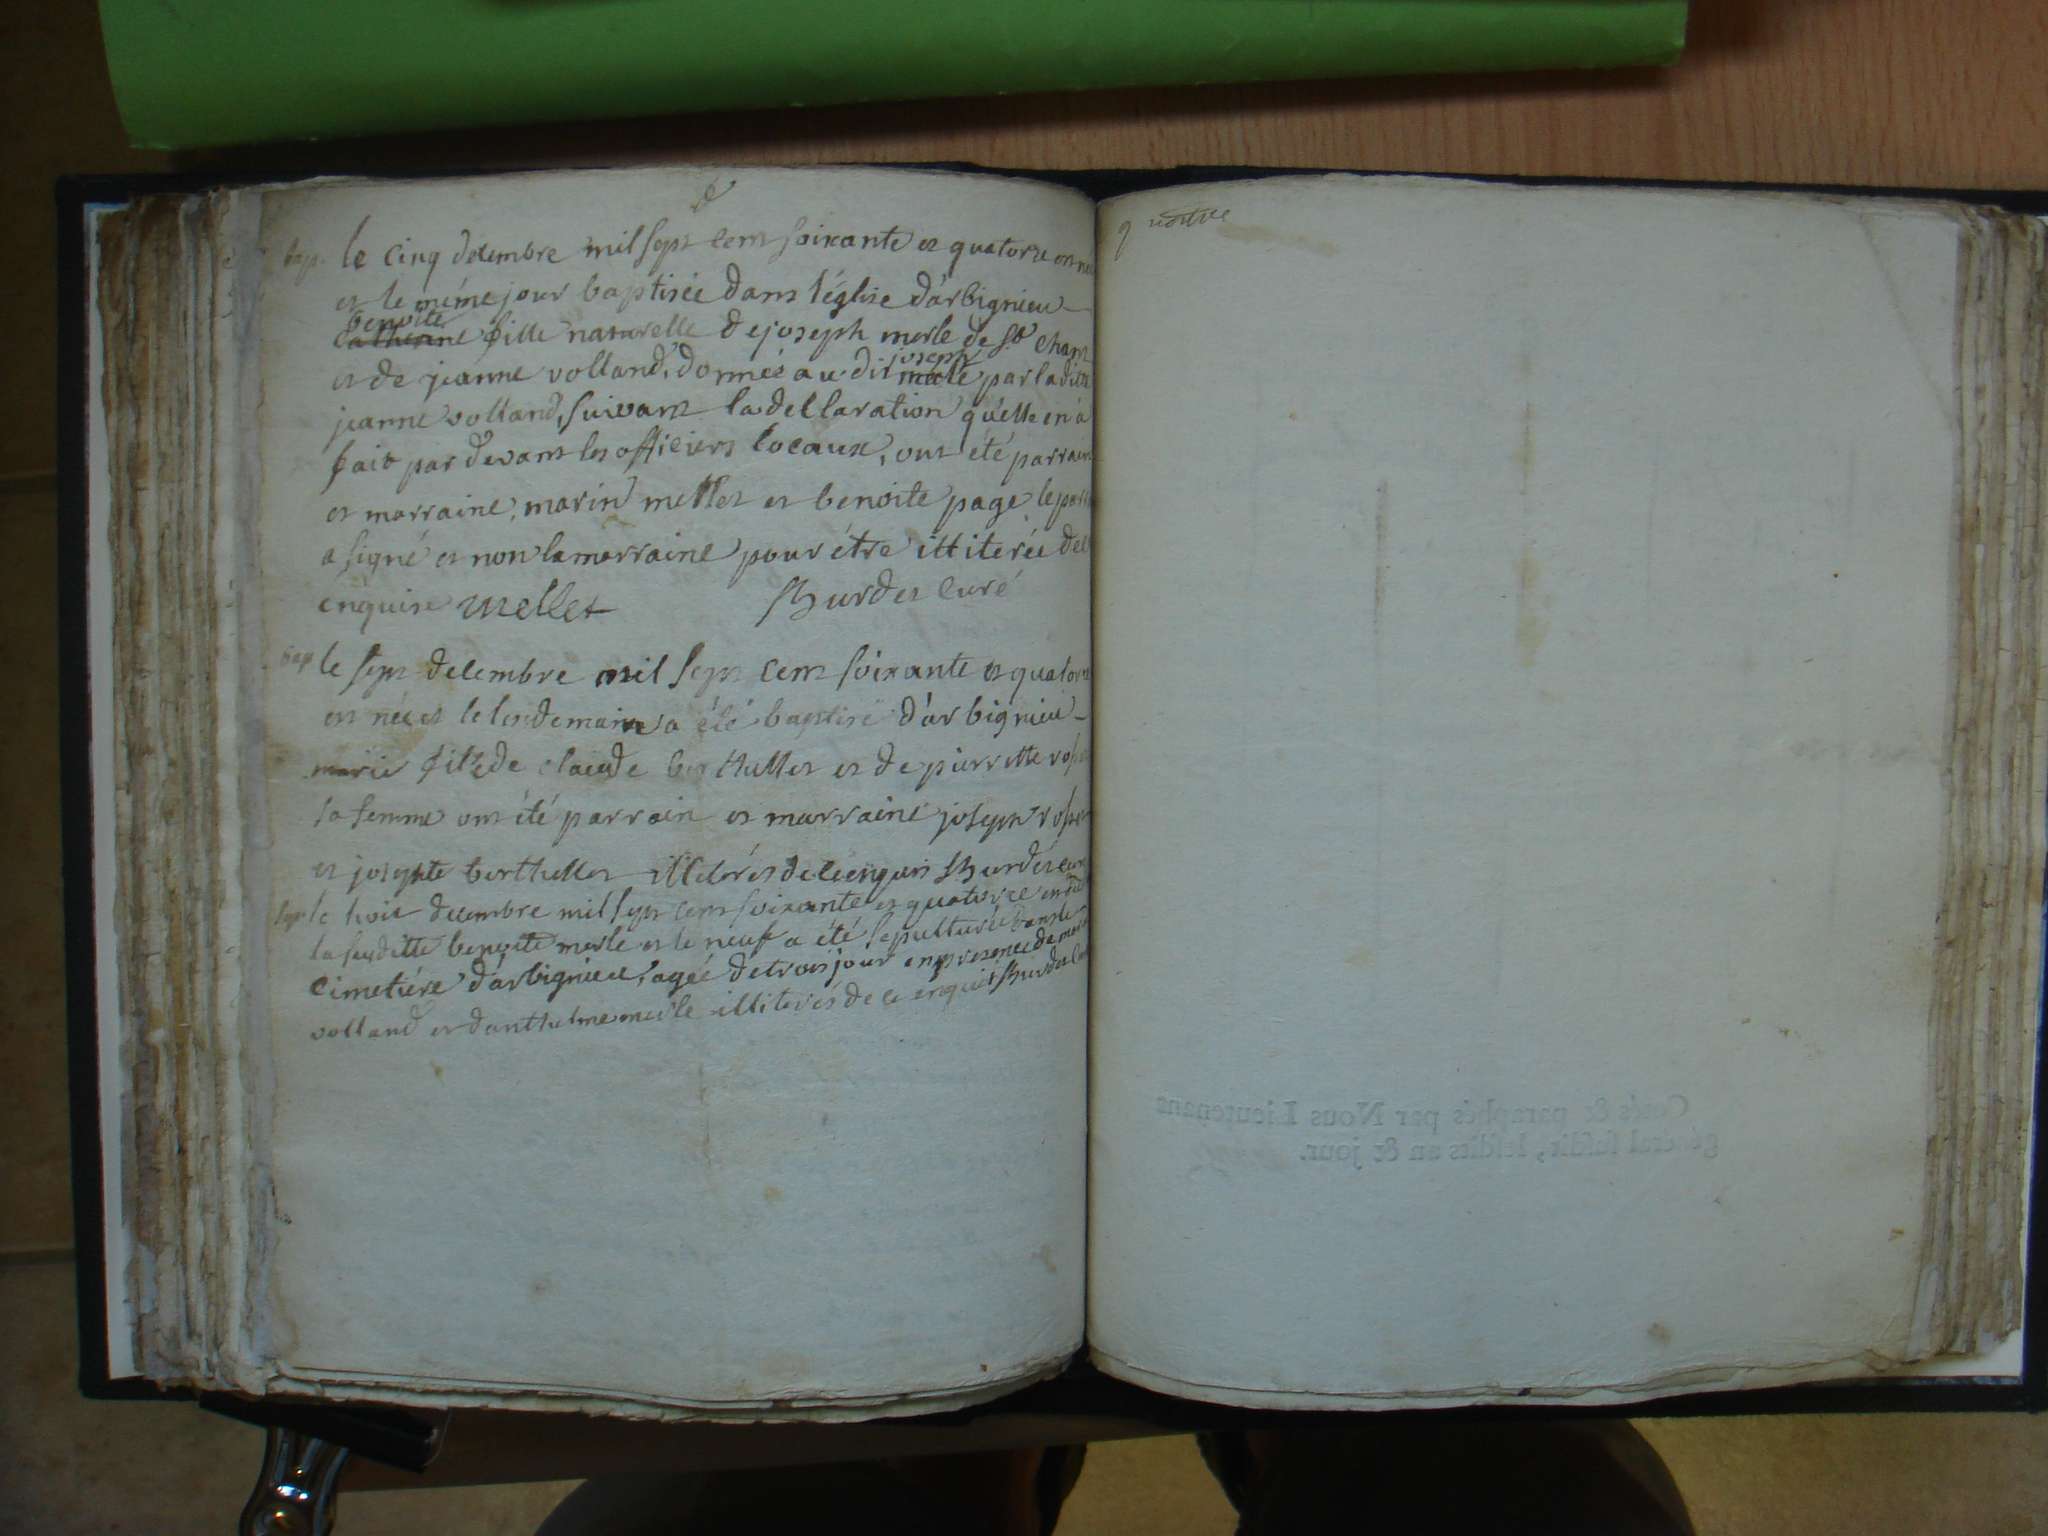 bap. le cinq decembre mil sept cent soixante et quatorze est née
et le méme jour baptisée dans l'église d'árbignieu
benoite
catherine fille naturelle de joseph merle de St Chant
joseph
et de jeanne volland, donnés au dit merle par la ditte
jeanne volland, suivant la declaration qu'elle en a
fait par devant les officiers locaux, ont été parrain
et marraine, marin mellet et benoite page le parr
a signé et non la marraine pour étre illiterée de
enquise mellet Burdet curé
bap le sept decembre mil sept cent soixante et quatorze
est née et le lendemain a été baptisé d'árbignieu
marie fille de claude berthellet et de pierrette rosset
sa femme ont été parrain et marraine joseph rosset
et josephte berthellet illiterés de ce enquis Burdet curé
sep le huit decembre mil sept cent soixante et quatorze
la susditte benoite merle et le neuf a été sepulturée dans le
cimetiére d'árbignieu, agée de trois jour en presence de
volland et d'anthelme merle illiterés de ce enquis Burdet curé
Cotés & paraphés par Nous Lieutenant
général susdit, lesdits an & jour.